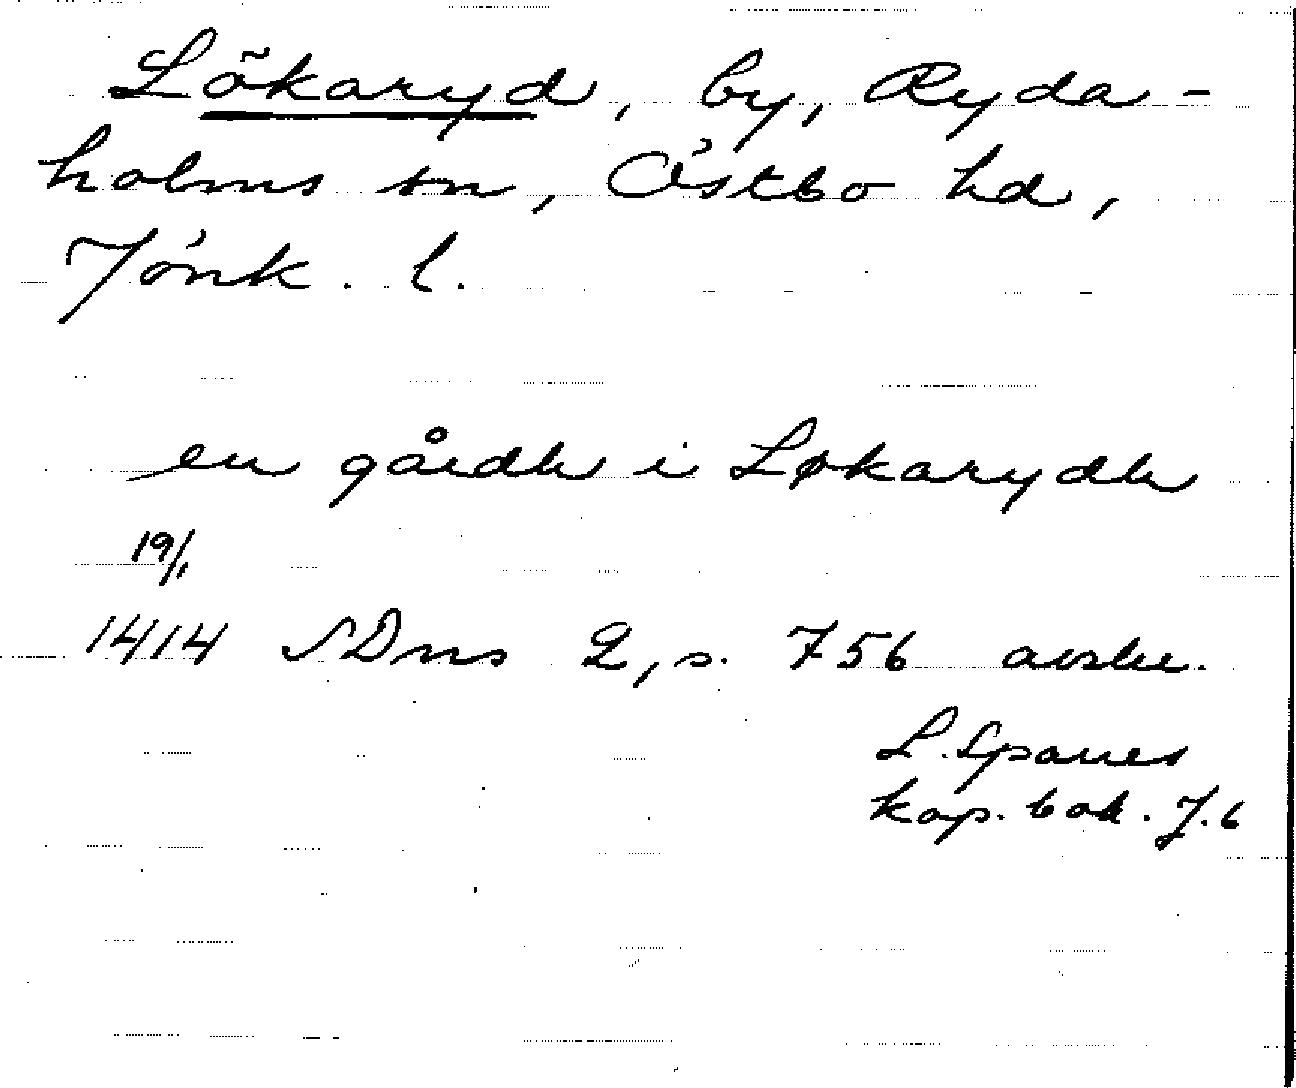 Lökaryd, by, Ryda-
holms sn, Östbo hd,
Jönk. l.
en gårdh i Løkarydh
19/1
1414 SDns 2, s. 756 avskr.
L. Sparres
kop. bok. J. 6